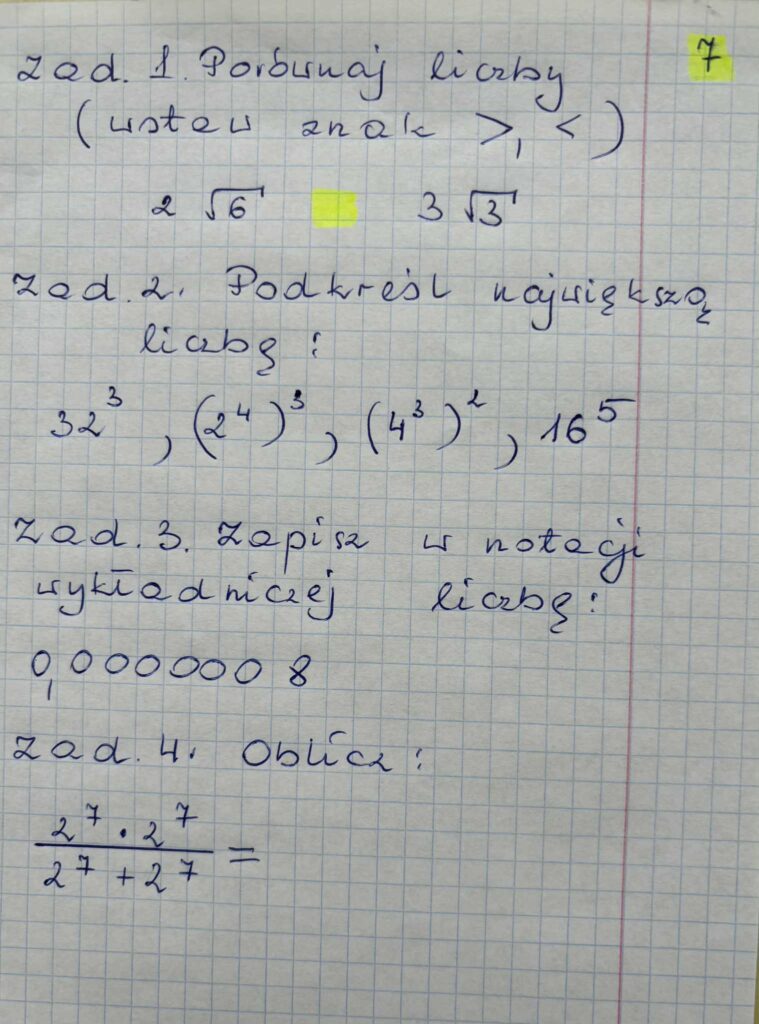 7
Zad. 1. Porównaj liczby
(wstaw znak >, <)
2 √6 3 √3
Zad. 2. Podkreśl największą
liczbę:
32³, (2⁴)³, (4³)², 16⁵
Zad. 3. Zapisz w notacji
wykładniczej liczbę:
0,000000 8
Zad. 4. Oblicz:
2⁷ · 2⁷
2⁷ + 2⁷ =